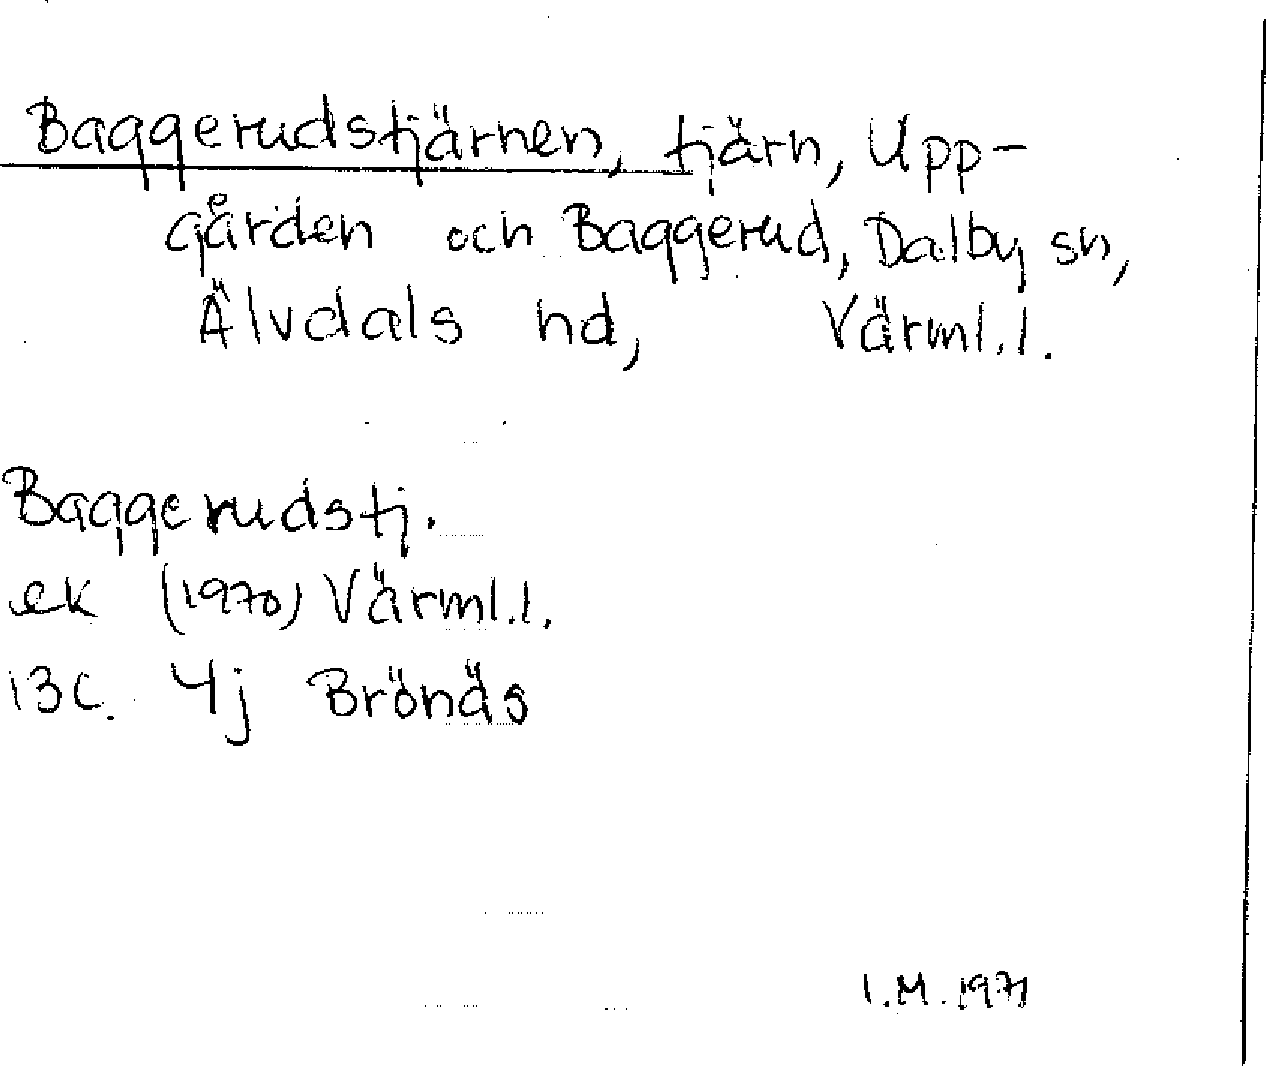 Baggerudstjärnen, tjärn, Upp-
gården och Baggerud, Dalby sn,
Älvdals hd, Värml.l.
Baggerudstj.
ek (1970) Värml.l.
13C. 4j Brönäs
I.M. 1971